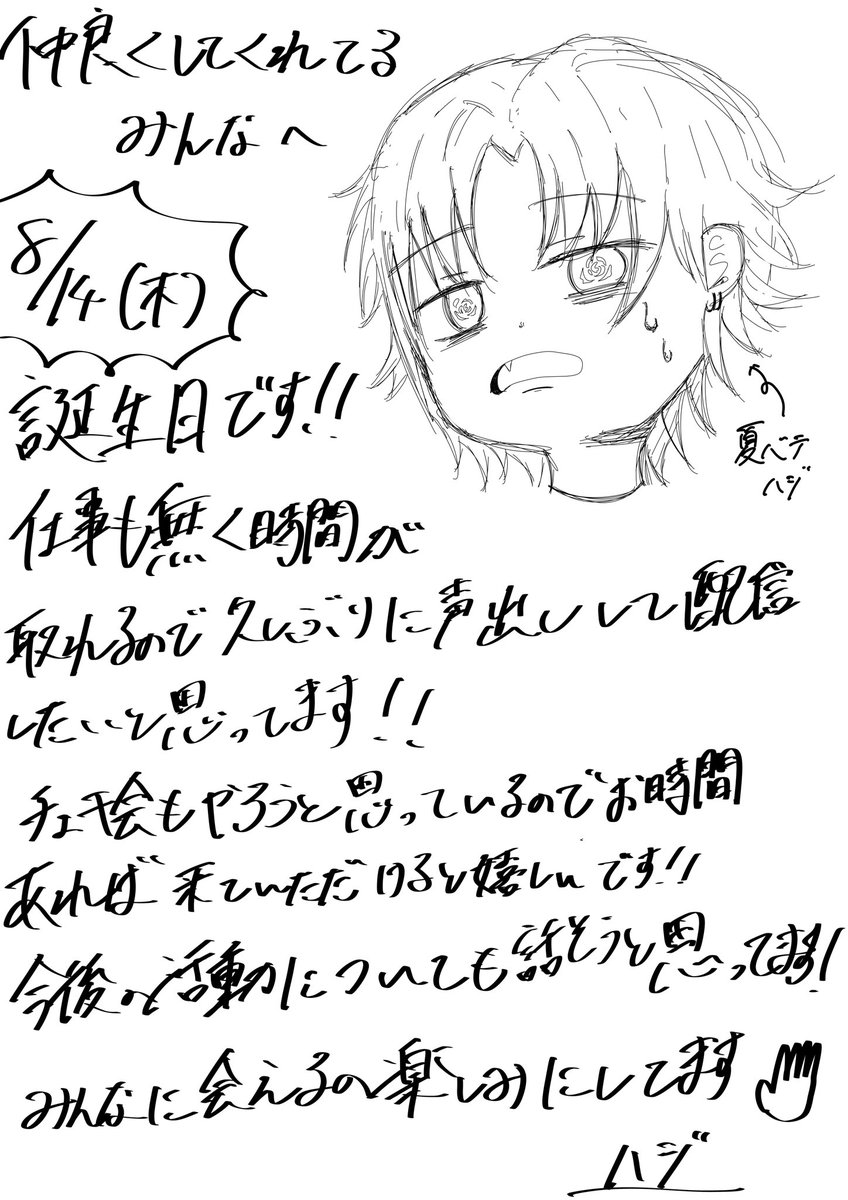 仲良くしてくれてる
みんなへ
8/14(木)
誕生日です!!
仕事も無く時間が
取れるので久しぶりに声出しして配信
したいと思ってます!!
チェキ会もやろうと思っているのでお時間
あれば来ていただけると嬉しいです!!
今後の活動についても話そうと思ってます!
みんなに会えるの楽しみにしてます
ハジ
夏バテ
ハジ